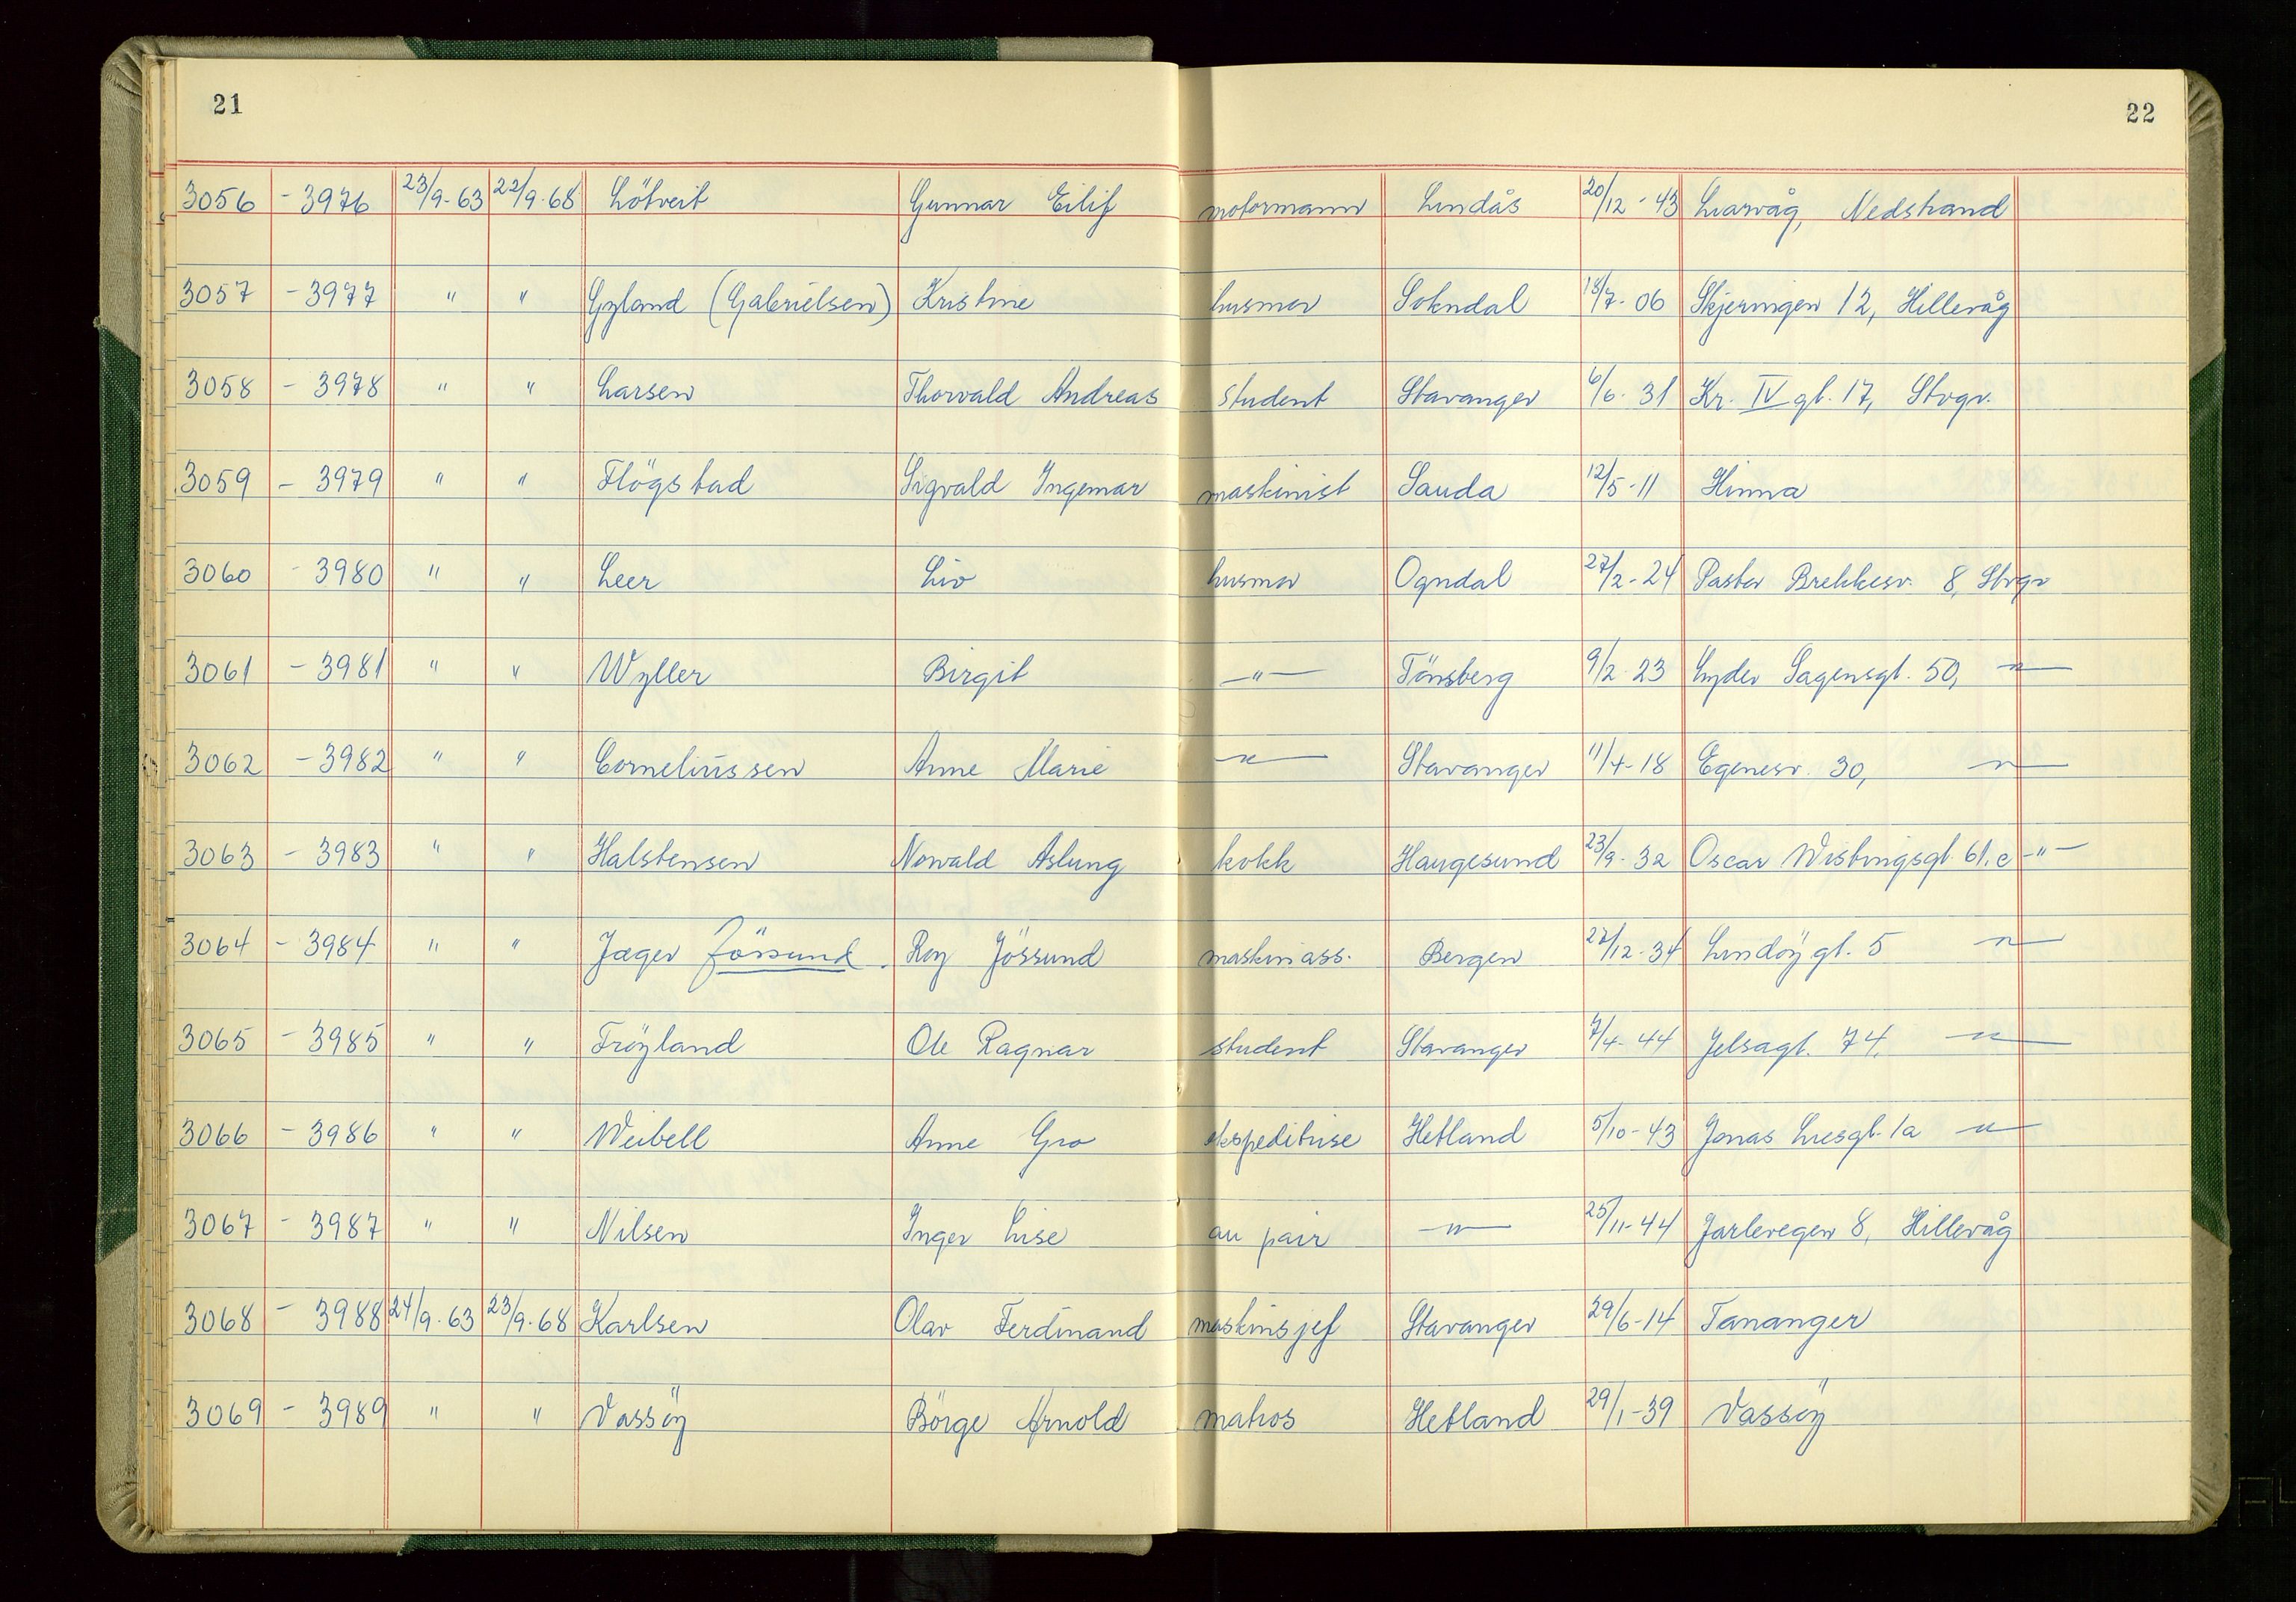 21
22
3056 - 3976 23/9-63 22/9-68 Lötveit Gunnar Eilif motormann Lindås 20/12-43 Liarvåg, Nedstrand
3057 - 3977 " " Gyland (Gabrielsen) Kristine husmor Sokndal 18/7-06 Skjeringen 12, Hillevåg
3058 - 3978 " " Larsen Thorvald Andreas student Stavanger 6/6-31 Kr. IV gt. 17, Stvgr.
3059 - 3979 " " Flögstad Sigvald Ingemar maskinist Sauda 12/5-11 Hinna
3060 - 3980 " " Leer Liv husmor Ogndal 27/2-24 Pastor Brekkesv. 8, Stvgr
3061 - 3981 " " Wyller Birgit —"— Tönsberg 9/2-23 Lyder Sagensgt. 50, —"—
3062 - 3982 " " Corneliussen Anne Marie —"— Stavanger 11/4-18 Egenesv. 30, —"—
3063 - 3983 " " Halstensen Novald Aslung kokk Haugesund 23/9-32 Oscar Wistingsgt. 61.c —"—
3064 - 3984 " " Jæger Jössund. Roy Jössund maskinass. Bergen 22/12-34 Lindöygt. 5 —"—
3065 - 3985 " " Fröyland Ole Ragnar student Stavanger 7/4-44 Jelsagt. 74, —"—
3066 - 3986 " " Weibell Anne Gro ekspeditrise Hetland 5/10-43 Jonas Liesgt. 1a —"—
3067 - 3987 " " Nilsen Inger Lise au pair —"— 25/11-44 Jarlevegen 8, Hillevåg
3068 - 3988 24/9-63 23/9-68 Karlsen Olav Ferdinand maskinsjef Stavanger 29/6-14 Tananger
3069 - 3989 " " Vassöy Börge Arnold matros Hetland 29/1-39 Vassöy